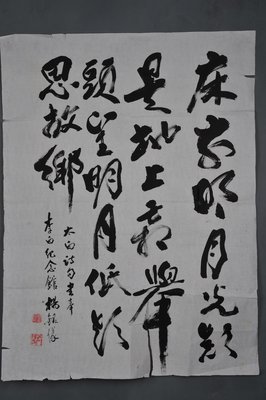 床前明月光疑
是地上霜舉
頭望明月低頭
思故鄉
太白詩句書奉
李白纪念館 楊